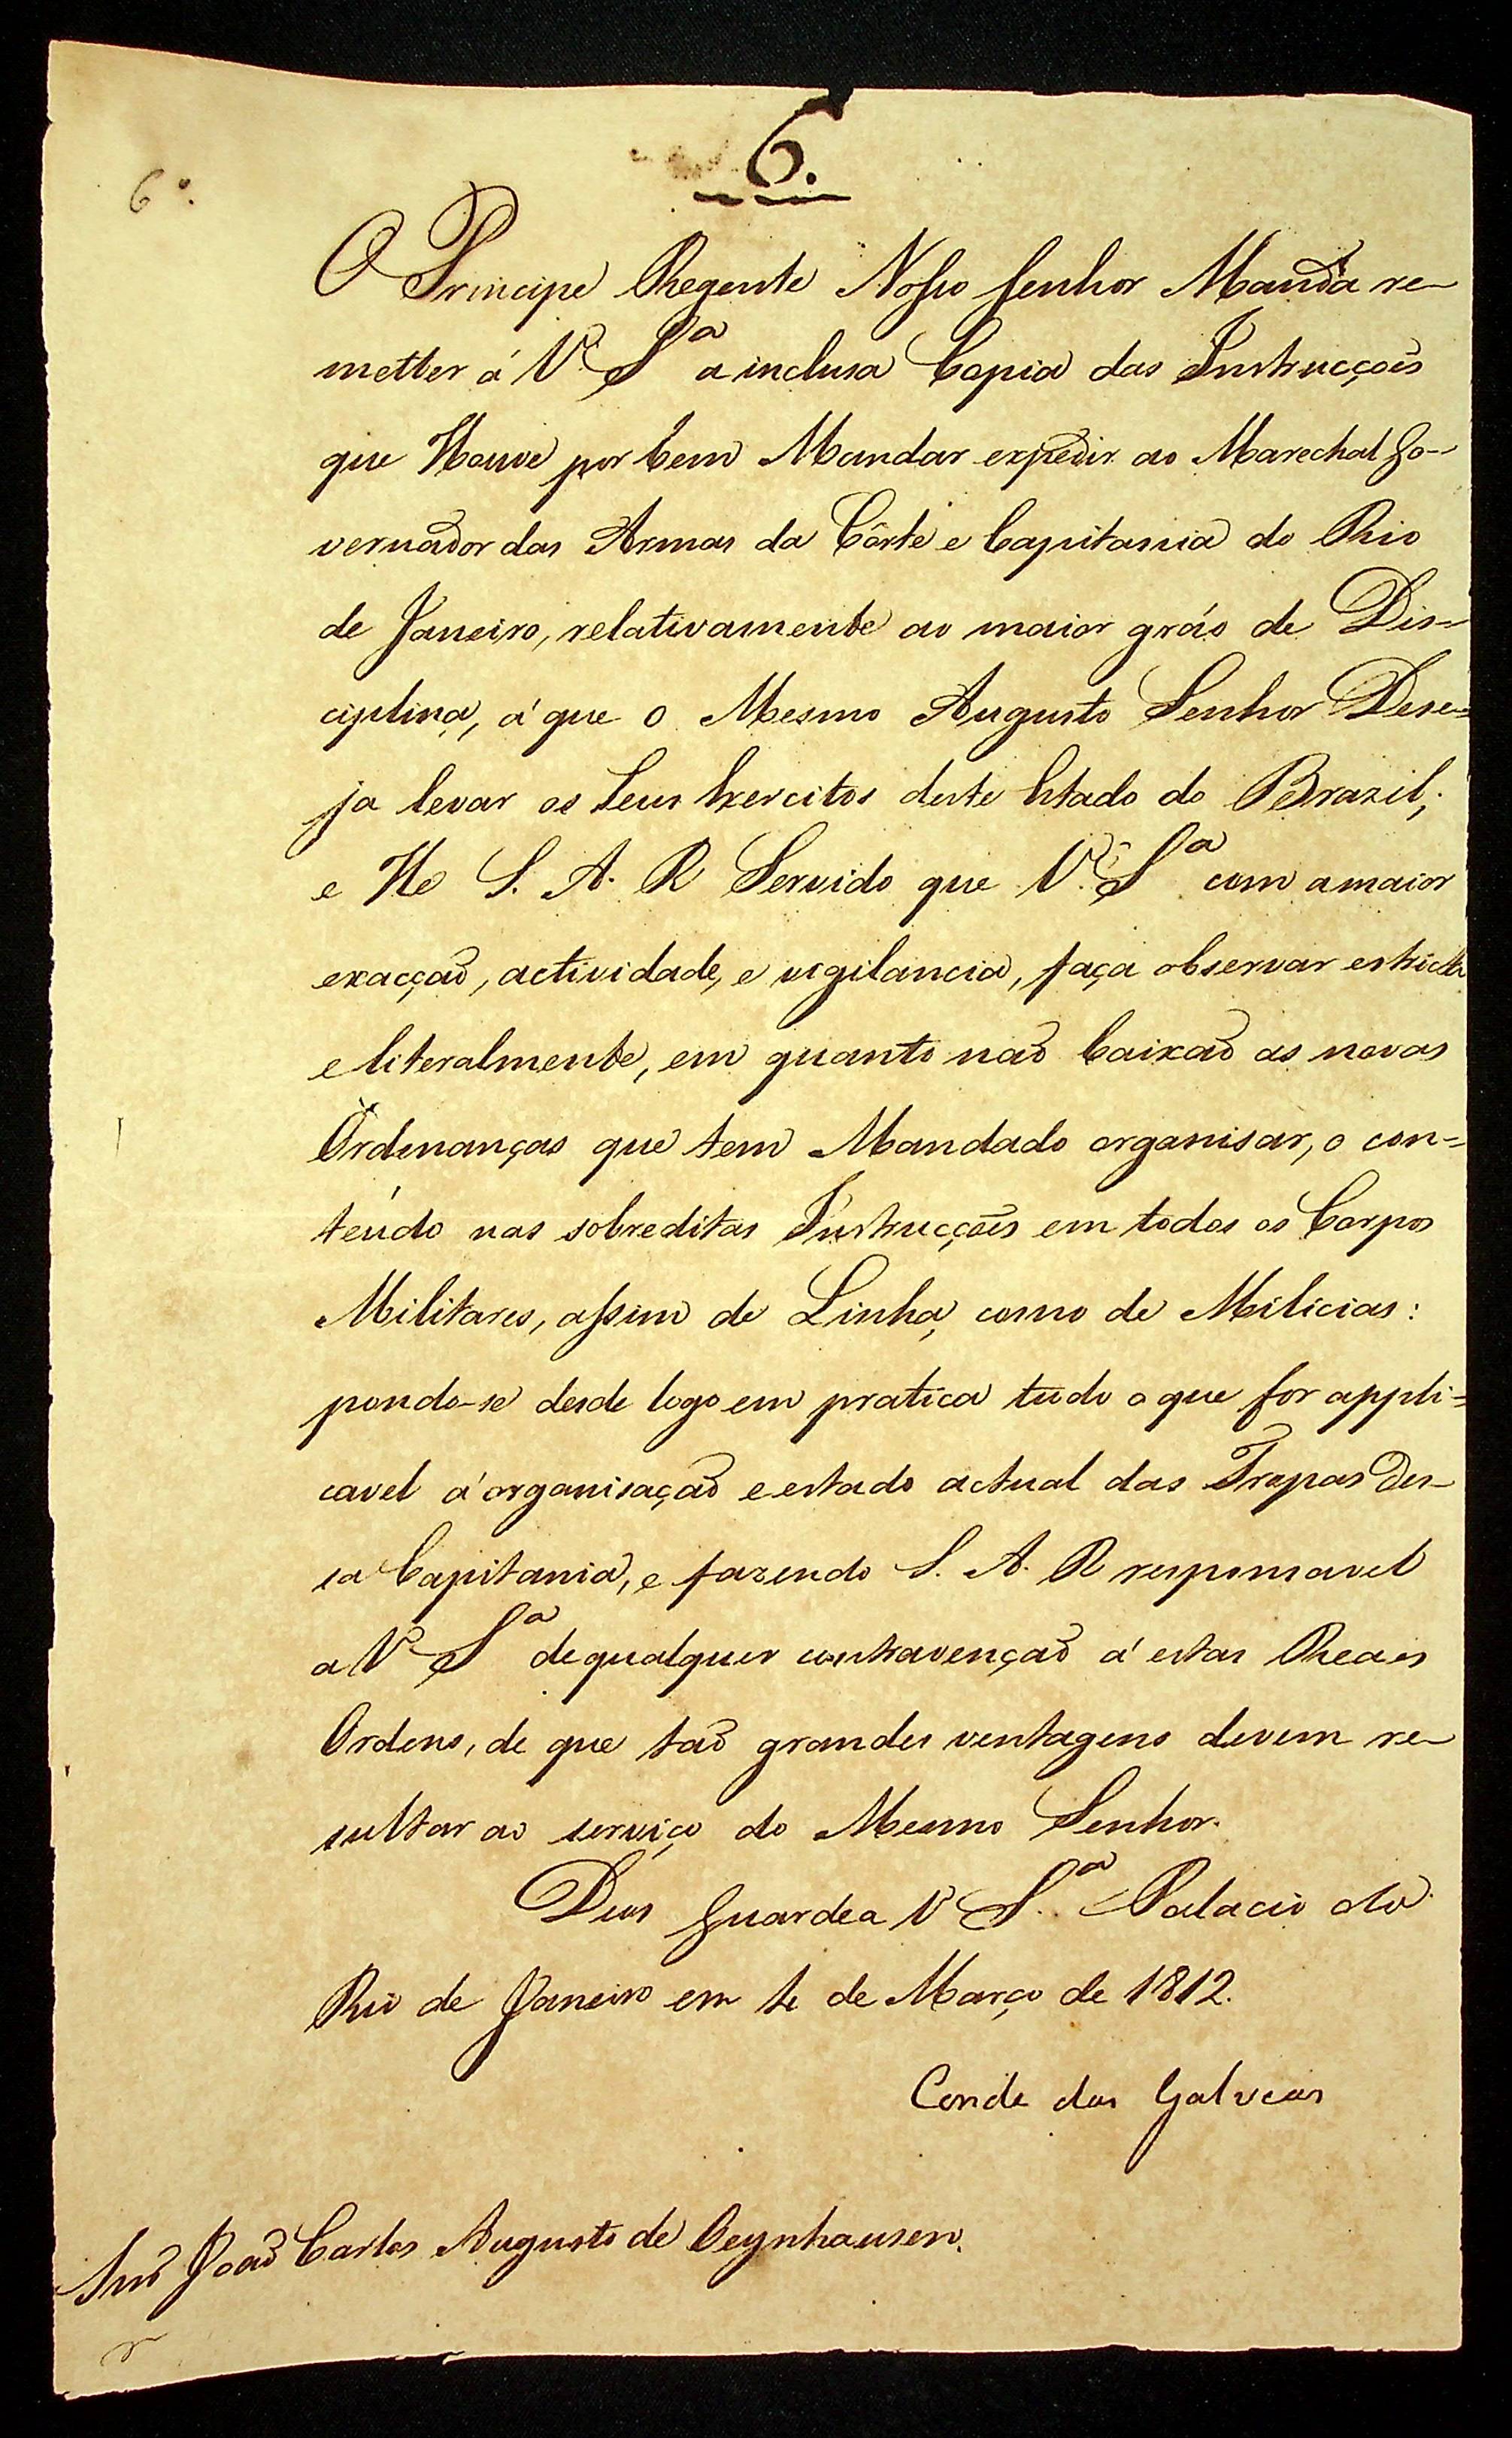 6.
6º.
O Principe Regente Nosso Senhor Manda re-
metter á V. Sª a inclusa Copia das Instrucções
que Houve por bem Mandar expedir ao Marechal Go-
vernador das Armas da Côrte e Capitania do Rio
de Janeiro, relativamente ao maior gráo de Dis-
ciplina, á que o Mesmo Augusto Senhor Dese=
ja levar os Seus Exercitos deste Estado do Brazil;
e He S. A. R Servido que V. Sª com a maior
exacção, actividade, e vigilancia, faça observar estricta
e literalmente, em quanto não baixão as novas
Ordenanças que tem Mandado organisar, o con=
teúdo nas sobreditas Instrucções em todos os Corpos
Militares, assim de Linha, como de Milicias:
pondo-se desde logo em pratica tudo o que for appli=
cavel á organisação e estado actual das Tropas des-
sa Capitania, e fazendo S. A. R responsavel
a V Sª de qualquer contravenção á estas Reaes
Ordens, de que tão grandes ventagens devem re-
sultar ao serviço do Mesmo Senhor.
Deos Guarde a V Sª. Palacio do
Rio de Janeiro em de Março de 1812.
Conde das Galveas
Snr João Carlos Augusto de Oeynhausen.